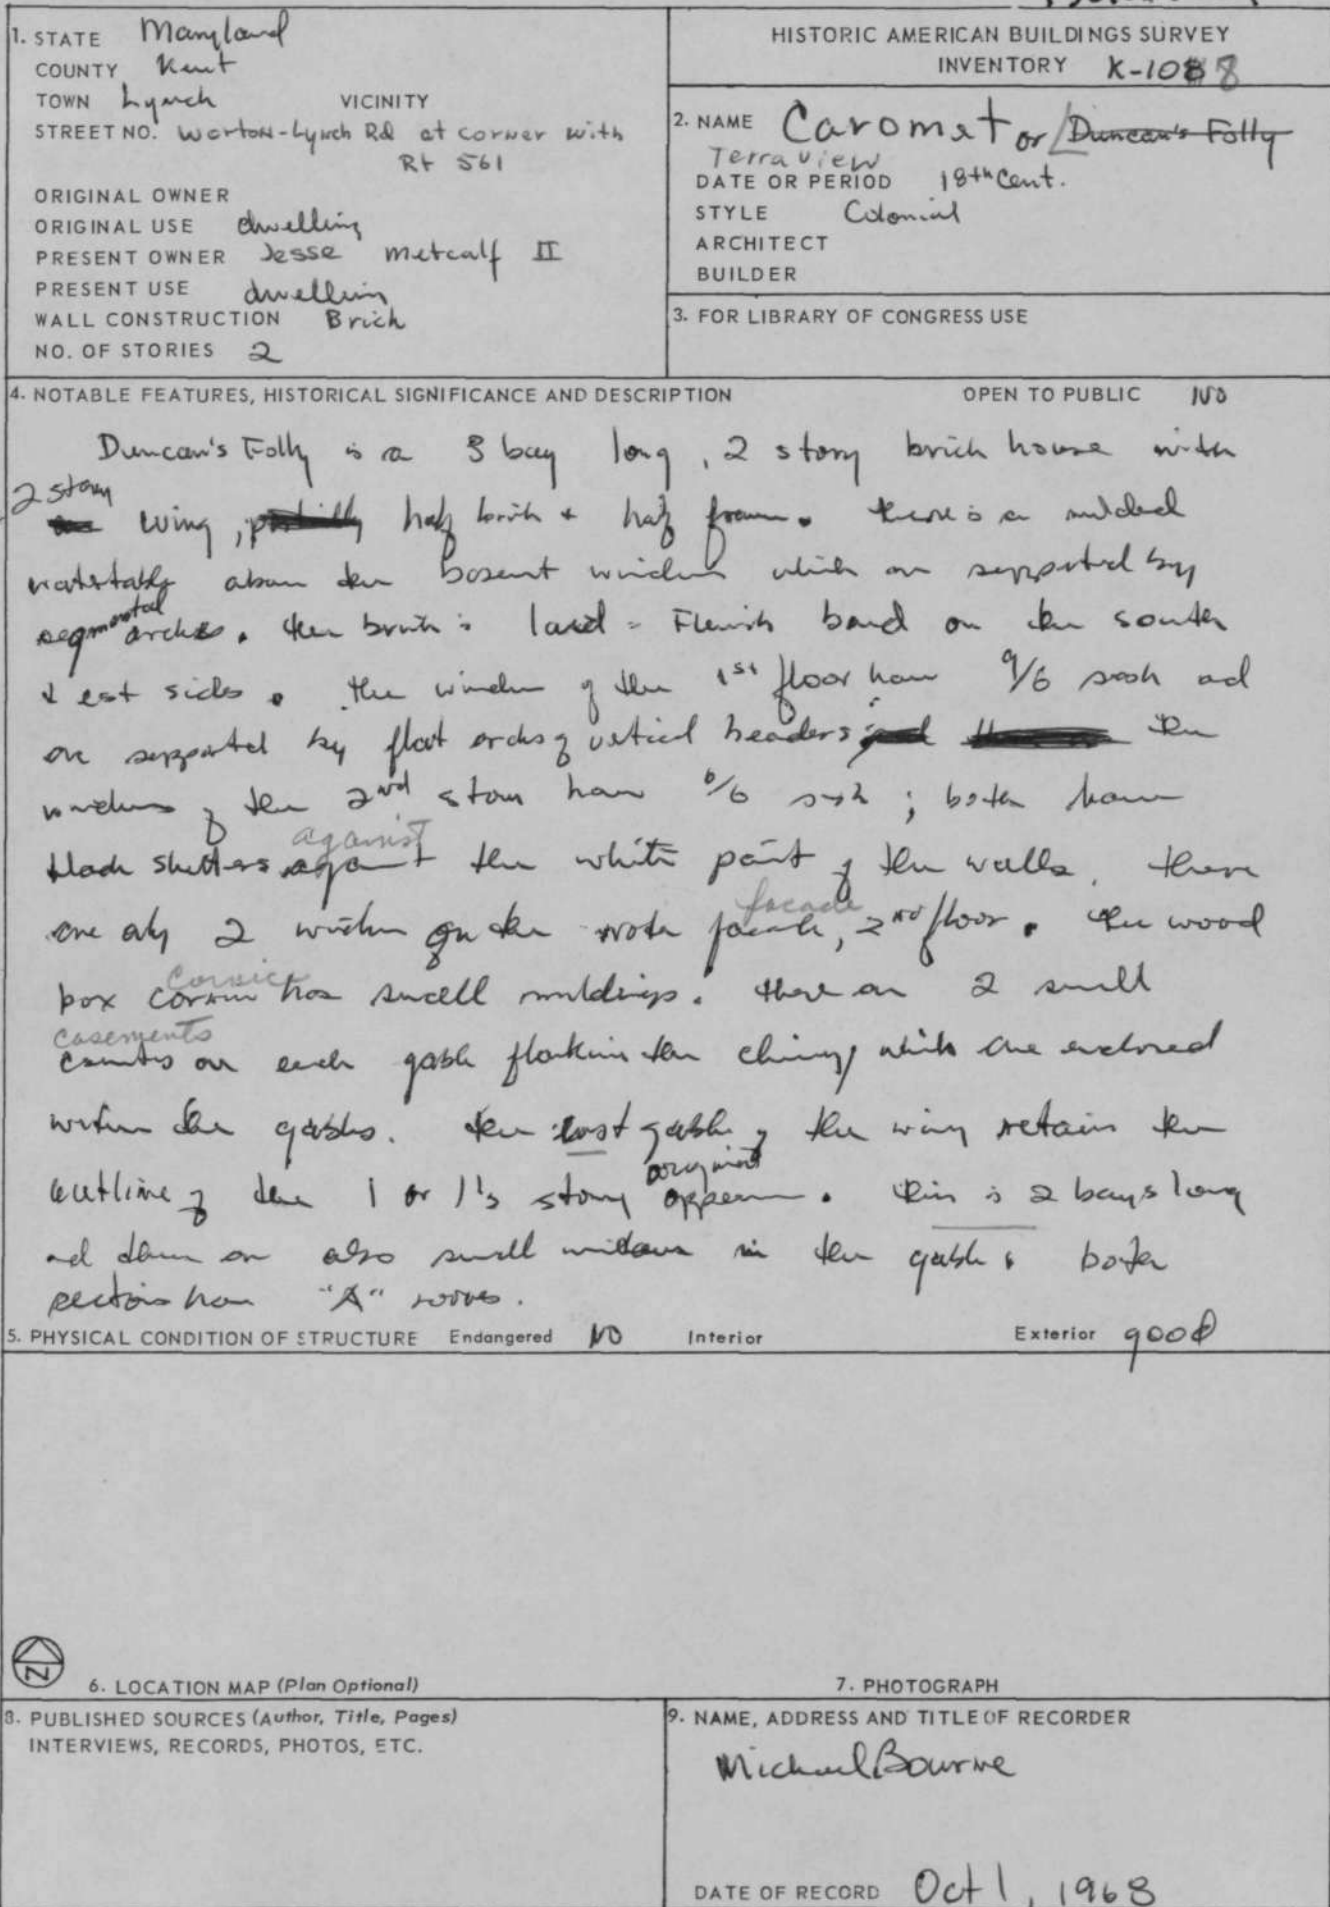 1. STATE Maryland
COUNTY Kent
TOWN Lynch VICINITY
STREET NO. Worton-Lynch Rd at corner with
Rt 561
ORIGINAL OWNER
ORIGINAL USE dwelling
PRESENT OWNER Jesse Metcalf II
PRESENT USE dwelling
WALL CONSTRUCTION Brick
NO. OF STORIES 2
HISTORIC AMERICAN BUILDINGS SURVEY
INVENTORY K-1088
2. NAME Caromet or Duncan's Folly
Terra View
DATE OR PERIOD 18th Cent.
STYLE Colonial
ARCHITECT
BUILDER
3. FOR LIBRARY OF CONGRESS USE
4. NOTABLE FEATURES, HISTORICAL SIGNIFICANCE AND DESCRIPTION OPEN TO PUBLIC NO
Duncan's Folly is a 3 bay long, 2 story brick house with
2 story
wing, half brick + half frame. there is a molded
watertable above the basement windows which are supported by
segmental arches. the brick is laid Flemish bond on the south
& east sides. the windows of the 1st floor have 9/6 sash and
are supported by flat arches of vertical headers; the
windows of the 2nd story have 6/6 sash; both have
against
black shutters against the white paint of the walls. there
facade
are only 2 windows on the north facade, 2nd floor. the wood
cornice
box cornice has small moldings. there are 2 small
casements
casements on each gable flanking the chimneys which are enclosed
within the gables. the east gable of the wing retains the
outline of the 1 or 1½ story original appearance. this is 2 bays long
and there are also small windows in the gable. both
sections have "A" roofs.
5. PHYSICAL CONDITION OF STRUCTURE Endangered NO Interior Exterior good
N
6. LOCATION MAP (Plan Optional)
7. PHOTOGRAPH
8. PUBLISHED SOURCES (Author, Title, Pages)
INTERVIEWS, RECORDS, PHOTOS, ETC.
9. NAME, ADDRESS AND TITLE OF RECORDER
Michael Bourne
DATE OF RECORD Oct 1, 1968